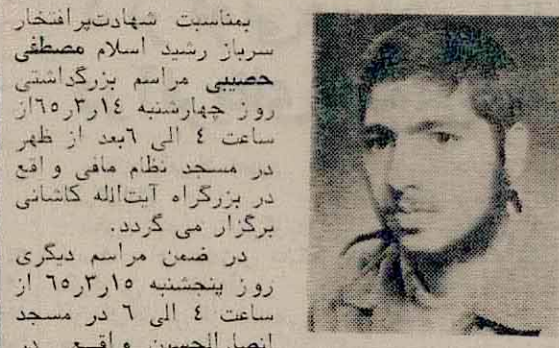 بمناسبت شهادت‌پرافتخار
سرباز رشید اسلام مصطفی
حصیبی مراسم بزرگداشتی
روز چهارشنبه ۱۴ر۳ر۶۵از
ساعت ٤ الی ٦بعد از ظهر
در مسجد نظام مافی واقع
در بزرگراه آیت‌الله کاشانی
برگزار می گردد.
در ضمن مراسم دیگری
روز پنجشنبه ۱۵ر۳ر۶۵ از
ساعت ٤ الی ٦ در مسجد
انصارالحسین واقع در